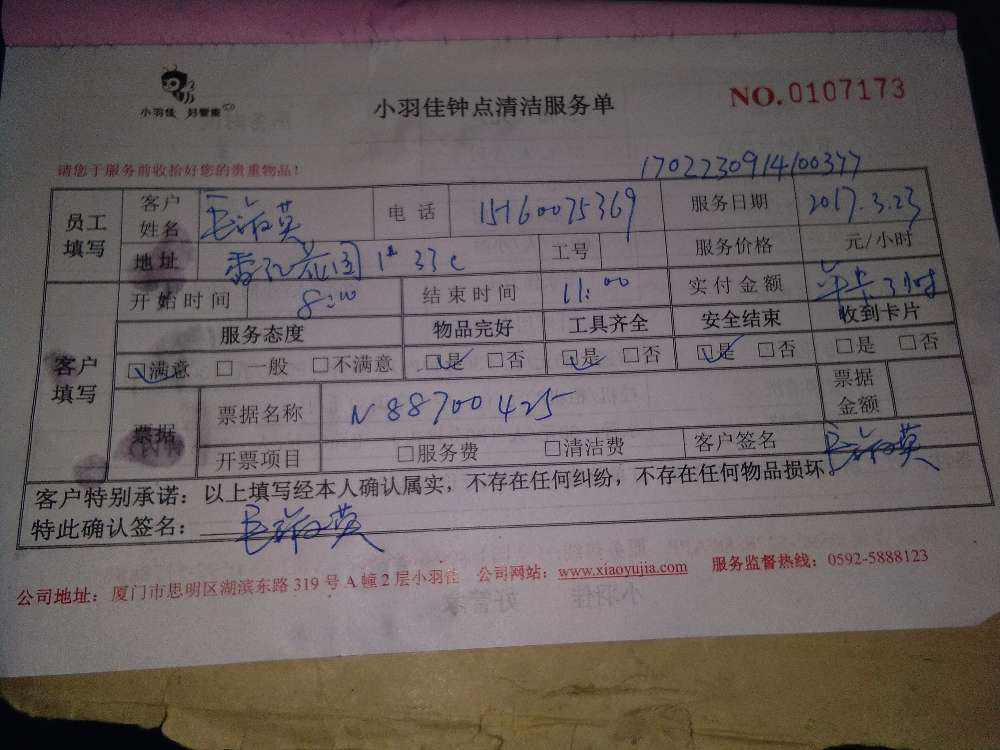 小羽佳 好管家
小羽佳钟点清洁服务单
NO.0107173
请您于服务前收拾好您的贵重物品！
1702230914100377
员工填写 客户姓名 毛淑英 电话 15160075369 服务日期 2017.3.23
地址 花园 33c 工号 服务价格 元/小时
客户填写 开始时间 8:00 结束时间 11:00 实付金额 年卡3小时
服务态度 物品完好 工具齐全 安全结束 收到卡片
☑满意 □一般 □不满意 ☑是 □否 ☑是 □否 ☑是 □否 □是 □否
票据 票据名称 N88700425 票据金额
开票项目 □服务费 □清洁费 客户签名 毛淑英
客户特别承诺：以上填写经本人确认属实，不存在任何纠纷，不存在任何物品损坏。
特此确认签名： 毛淑英
公司地址：厦门市思明区湖滨东路319号A幢2层小羽佳 公司网站：www.xiaoyujia.com 服务监督热线：0592-5888123